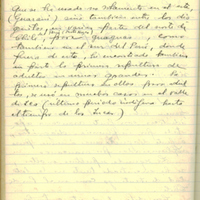 Que se ha usado no solamente en el este,
(Guaraní) sino también entre los dia
guitas, en gran parte del norte de
Chile, por guaguas, como
también en el sur del Perú, donde
fuera de esto, he encontrado también
en parte la primera sepultura de
adultos en urnas grandes. La
primera sepultura en ollas para adul
tos, se usó en muchos casos en el valle
de Ica (último período indígena hasta
el tiempo de los Incas)